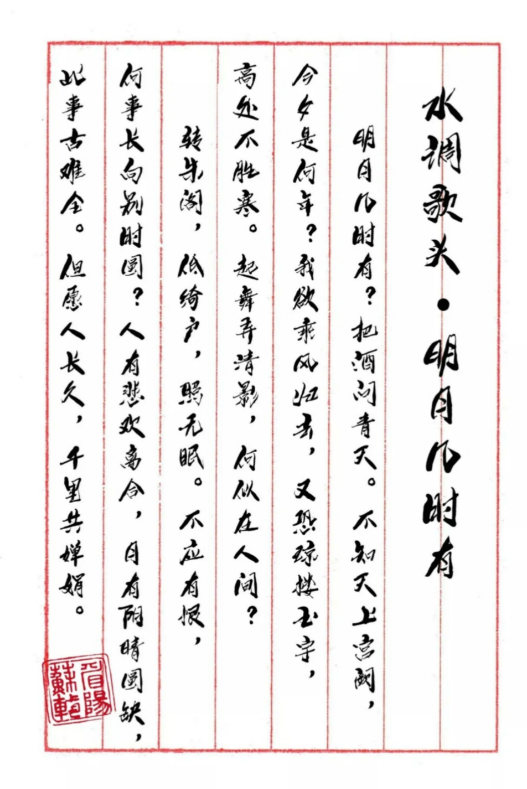 水调歌头·明月几时有
明月几时有？把酒问青天。不知天上宫阙，
今夕是何年？我欲乘风归去，又恐琼楼玉宇，
高处不胜寒。起舞弄清影，何似在人间？
转朱阁，低绮户，照无眠。不应有恨，
何事长向别时圆？人有悲欢离合，月有阴晴圆缺，
此事古难全。但愿人长久，千里共婵娟。